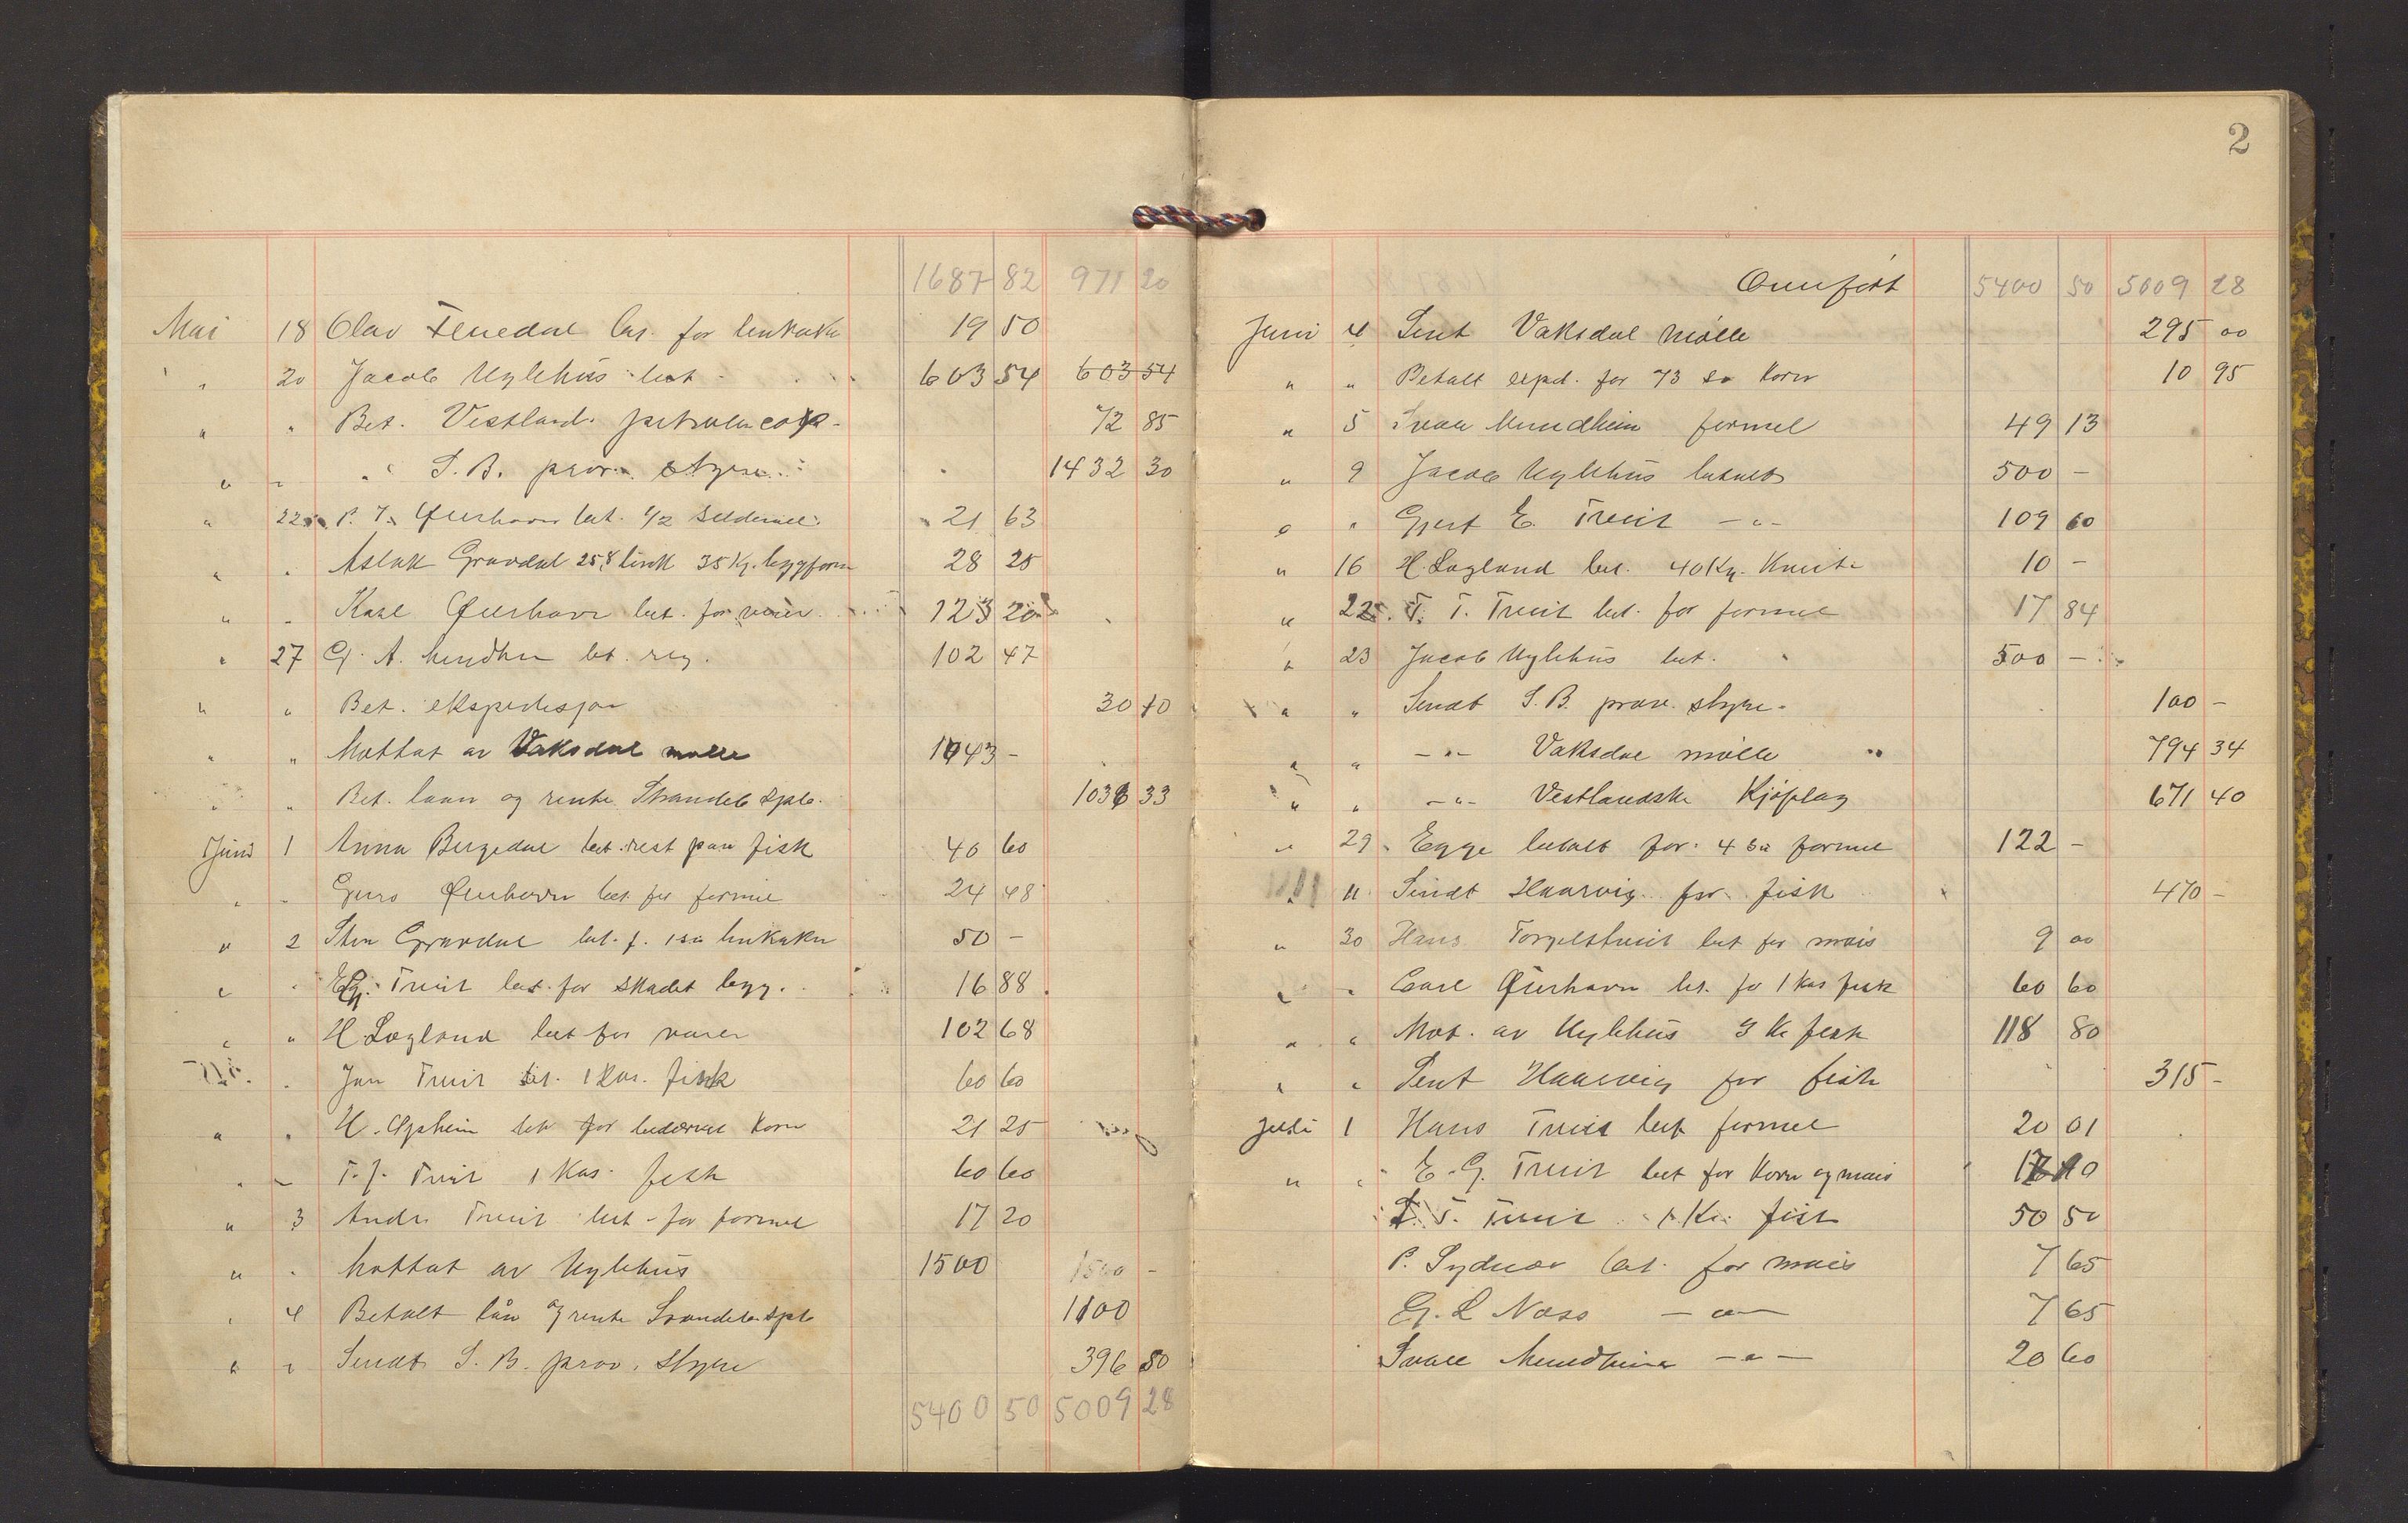 1687 82 971 20
Mai 18 Olav Tenedal bet. for linkaker 19 50
" 20 Jacob Uglehus bet 603 54 603 54
" " Bet. Vestland. petroleumcop. 72 85
" " " S. B. prov. styre 1432 30
" 22 P. T. Øierhavn bet. 1/2 sildemel 21 63
" " Aslak Gravdal 35 Kg. byggform 28 25
" " Karl Øierhavn bet. for varer 123 20
" 27 G. A. Mundhei bet. reg. 102 47
" " Bet. ekspedisjon 30 10
" " Mottat av Vaksdal mølle 1043 -
" " Bet. laan og rente Strandeb. Spb. 1036 33
Juni 1 Anna Bergedal bet. rest paa fisk 40 60
" " Guro Øierhavn bet. for formel 24 48
" 2 Sten Gravdal bet. f. 1 sæ linkaker 50 -
" " E.G. Tveit bet. for skadet bygg. 16 88
" " H. Løgland bet for varer 102 68
" " Jon Tveit bet. 1 kas. fisk 60 60
" " H. Opheim bet for bedærvet korn 21 25
" " T. J. Tveit 1 Kas. fisk 60 60
" 3 Anders Tveit bet. for formel 17 20
" " Mottat av Uglehus 1500 1500 -
" 4 Betalt lån og rente Strandeb. Spb 1100
" " Sendt S. B. prov. styre 396 50
5400 50 5009 28
2
Overført 5400 50 5009 28
Juni 4 Sent Vaksdal Mølle 295 00
" " Betalt expd. for 73 sæ Korn 10 95
" 5 Svale Mundheim formel 49 13
" 9 Jacob Uglehus betalt 500 -
" " Gjert E. Tveit -"- 109 60
" 16 H. Løgland bet. 40 Kg. Kveite 10 -
" 22 T. T. Tveit bet. for formel 17 84
" 23 Jacob Uglehus bet. 500 -
" " Sendt S. B. prov. styre. 100 -
" " -"- Vaksdal mølle 794 34
" " -"- Vestlandske Kjøplag 671 40
" 29 Egge betalt for 4 sæ formel 122 -
" " Sendt Haarvig for fisk 470 -
" 30 Hans Torgelstveit bet for mais 9 00
" " Carl Øierhavn bet. for 1 kas fisk 60 60
" " Mot. av Uglehus 3 K fisk 118 80
" " Sent Haarvig for fisk 315 -
Juli 1 Hans Tveit bet formel 20 01
" " E. G. Tveit bet for Korn og mais
T. T. Tveit 1 Ks. fisk 50 50
P. Sydnes bet. for mais 7 65
G. L Næss -"- 7 65
Svale Mundheim -"- 20 60